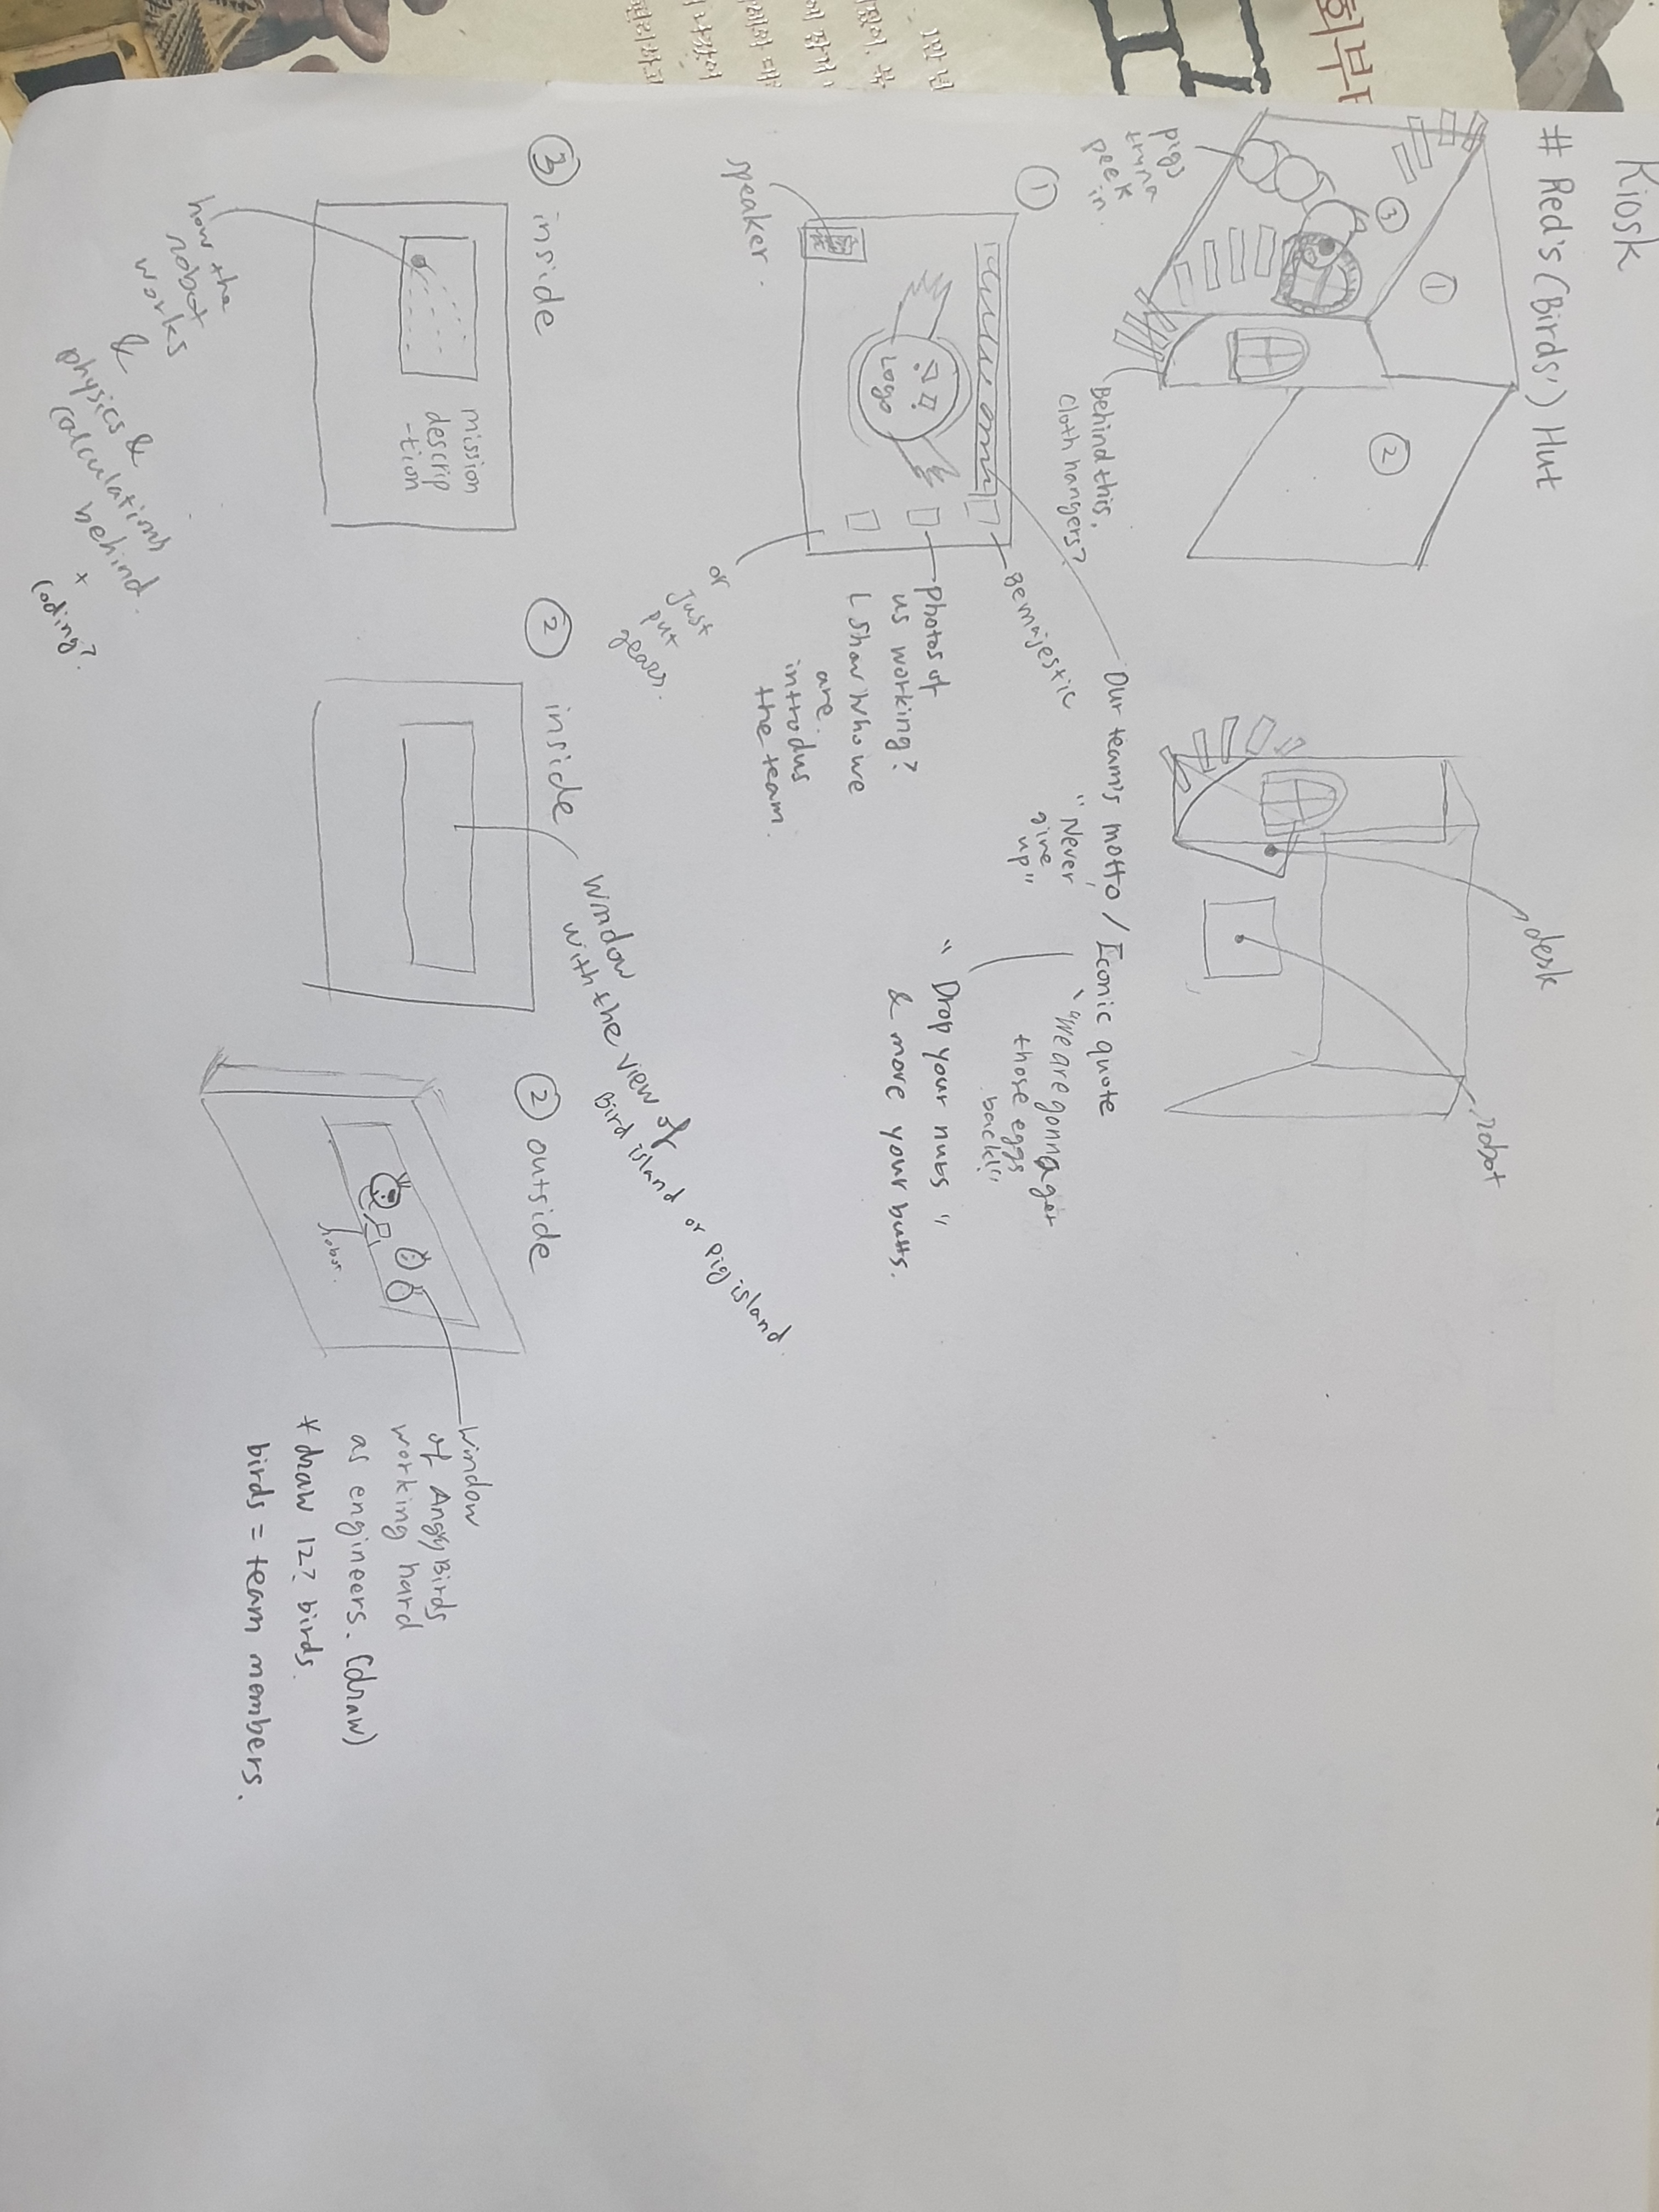 Kiosk
# Red's (Birds') Hut
①
②
③
pigs
tryna
peek
in.
Behind this,
cloth hangers?
desk
robot
①
speaker.
Logo
Bemajestic
photos of
us working?
( show who we
are.
introdus
the team.
or
Just
put
gears.
Our team's motto / Iconic quote
"Never
give
up"
"we are gonna get
those eggs
back!!"
" Drop your nuts "
& move your butts.
③ inside
mission
descrip
-tion
how the
robot
works
&
physics &
calculations
behind.
+
coding?
② inside
window
with the view of
Bird island or pig island.
② outside
robot.
Window
of AngryBirds
working hard
as engineers. (draw)
* draw 12? birds.
birds = team members.
회부